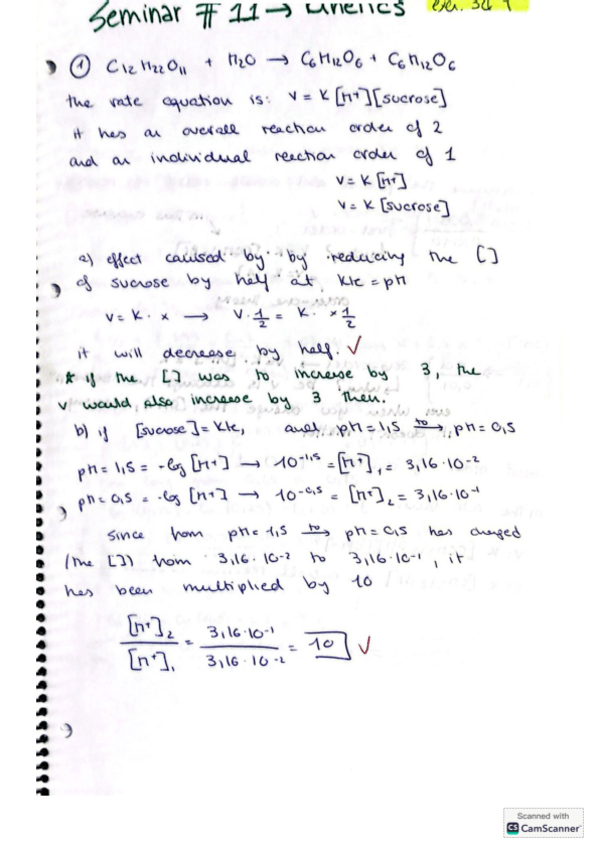 Seminar # 11 → Kinetics exer. Set 9
① C12H22O11 + H2O → C6H12O6 + C6H12O6
the rate equation is: v = K [H+][sucrose]
it has an overall reaction order of 2
and an individual reaction order of 1
v = K [H+]
v = K [sucrose]
a) effect caused by by reducing the []
of sucrose by half at Kte = pH
v = K · x → v · 1/2 = K · x 1/2
it will decrease by half. ✓
* if the [] was to increase by 3, the
v would also increase by 3 then.
b) if [sucrose] = Kte, and pH = 1,5 to→ pH = 0,5
pH = 1,5 = -log [H+] → 10^-1,5 = [H+]1 = 3,16 · 10^-2
pH = 0,5 = -log [H+] → 10^-0,5 = [H+]2 = 3,16 · 10^-1
since from pH = 1,5 to→ pH = 0,5 has changed
(the []) from 3,16 · 10^-2 to 3,16 · 10^-1, it
has been multiplied by 10
[H+]2 / [H+]1 = 3,16 · 10^-1 / 3,16 · 10^-2 = 10 ✓
Scanned with
CS CamScanner